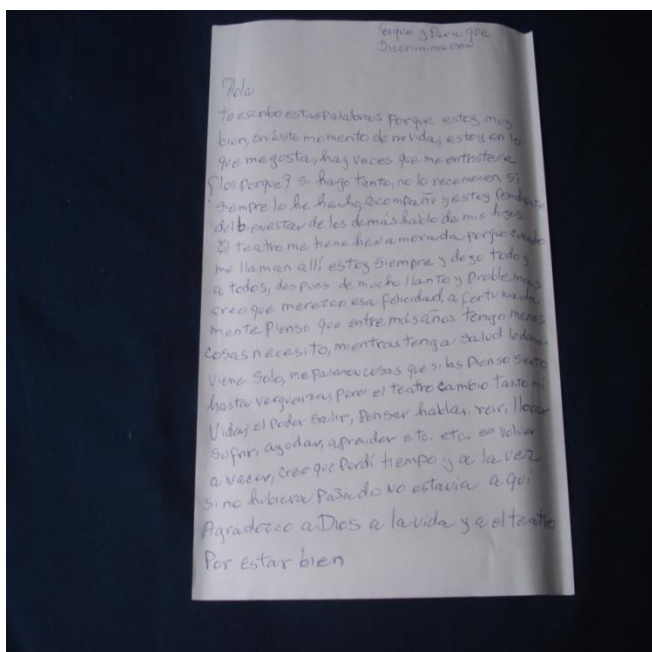 Porque y Para que
Discriminación
Hola
te escribo estas palabras Porque estoy muy
bien, en este momento de mi vida, estoy en lo
que me gosta, hay veces que me entristece
¿los porque? si hago tanto, no lo reconocen, si
siempre lo he hecho, acompaño y estoy Pendiente
del bienestar de los demás hablo de mis hijos.
El teatro me tiene henamorada porque cuando
me llaman allí estoy siempre y dejo todo y
a todos, despues de mucho llanto y Problemas
creo que merezco esa felicidad, afortunada
mente Pienso que entre más años tengo menos
cosas necesito, mientras tenga salud lo demas
viene solo, me pasaron cosas que si las Pienso siento
hasta verguenza, Pero el teatro cambio tanto mi
Vida, el poder salir, Pensar hablar, reir, llorar
sufrir, ayudar, aprender etc. etc. es volver
a nacer, creo que Perdí tiempo y a la vez
si no hubiera Pasado No estaria aquí
Agradezco a Dios a la vida y a el teatro
Por estar bien